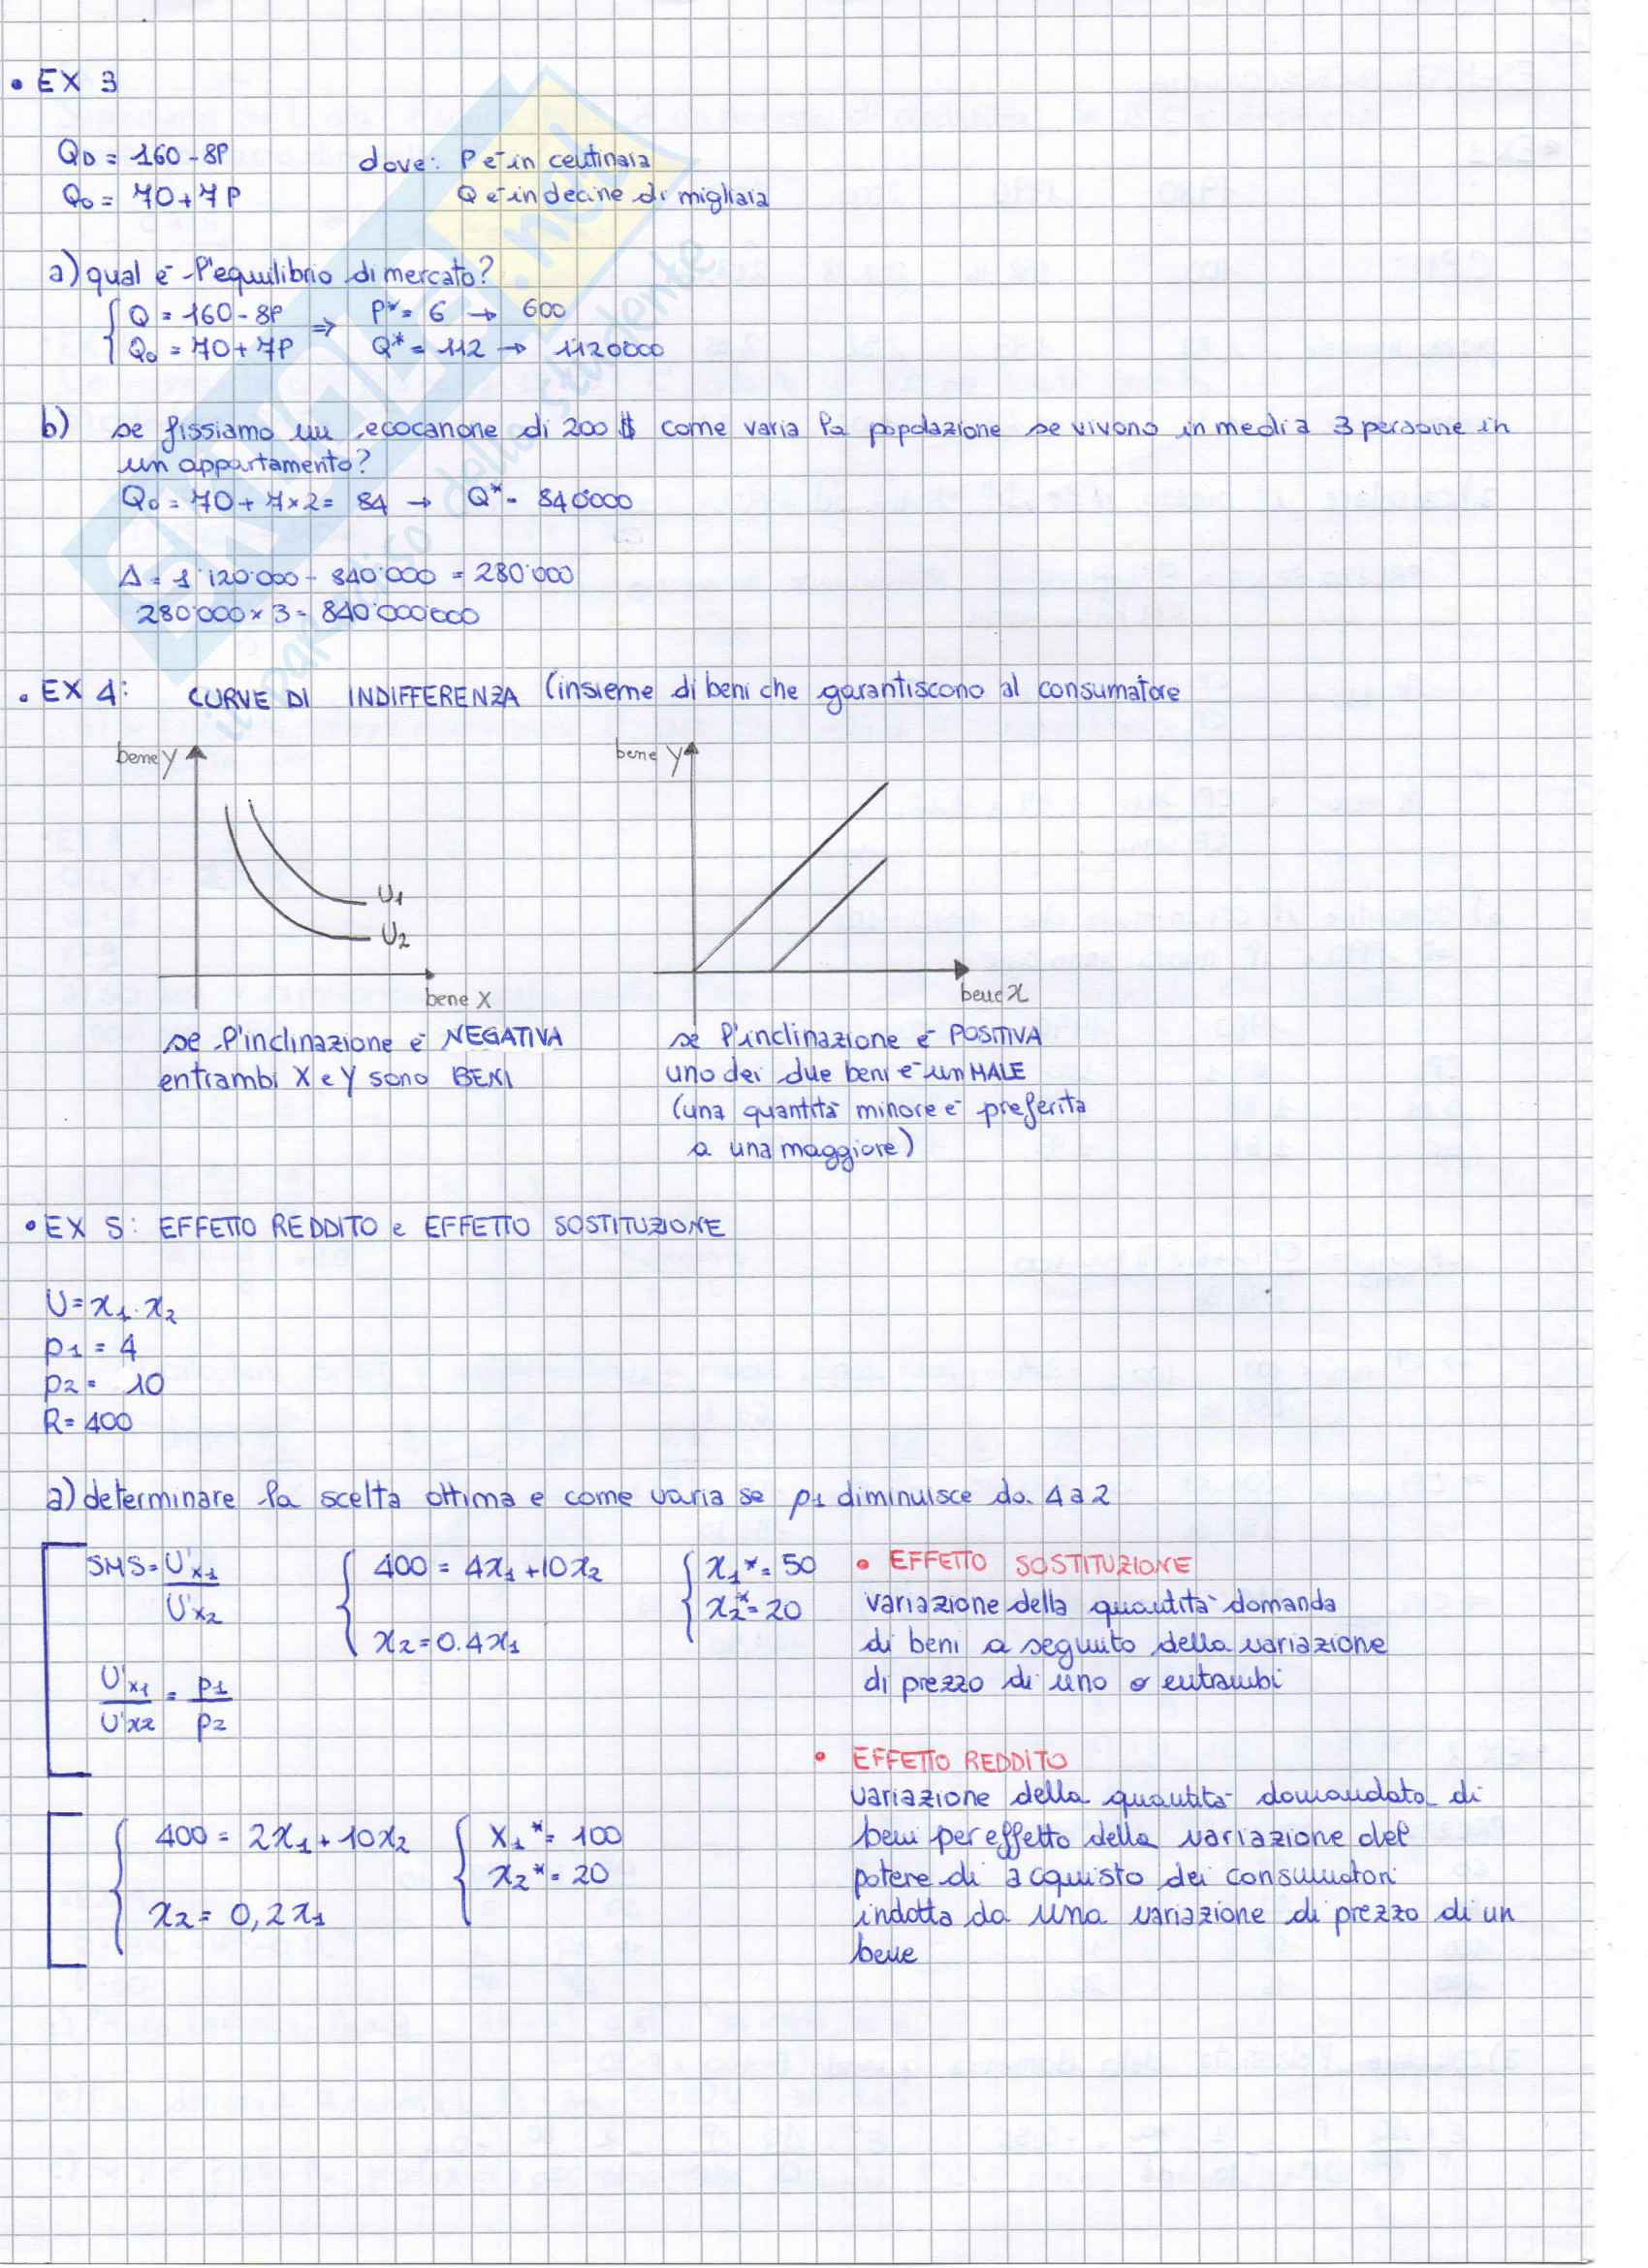 • EX 3
QD = 160 - 8P dove: P è in centinaia
Qo = 70 + 7P Q è in decine di migliaia
a) qual è l'equilibrio di mercato?
Q = 160 - 8P ⇒ P* = 6 → 600
Qo = 70 + 7P Q* = 112 → 1120000
b) se fissiamo un ecocanone di 200 $ come varia la popolazione se vivono in media 3 persone in
un appartamento?
Qo = 70 + 7×2 = 84 → Q* = 840000
Δ = 1'120'000 - 840'000 = 280'000
280'000 × 3 = 840'000'000
• EX 4: CURVE DI INDIFFERENZA (insieme di beni che garantiscono al consumatore
bene Y
bene Y
U1
U2
bene X
bene X
se l'inclinazione è NEGATIVA
entrambi X e Y sono BENI
se l'inclinazione è POSITIVA
uno dei due beni è un MALE
(una quantità minore è preferita
a una maggiore)
• EX 5: EFFETTO REDDITO e EFFETTO SOSTITUZIONE
U = x1 · x2
p1 = 4
p2 = 10
R = 400
a) determinare la scelta ottima e come varia se p1 diminuisce da 4 a 2
SMS = U'x1 / U'x2
U'x1 / U'x2 = p1 / p2
400 = 4x1 + 10x2
x2 = 0.4x1
x1* = 50
x2* = 20
• EFFETTO SOSTITUZIONE
variazione della quantità domanda
di beni a seguito della variazione
di prezzo di uno o entrambi
• EFFETTO REDDITO
variazione della quantità domandata di
beni per effetto della variazione del
potere di acquisto dei consumatori
indotta da una variazione di prezzo di un
bene
400 = 2x1 + 10x2
x2 = 0,2x1
x1* = 100
x2* = 20